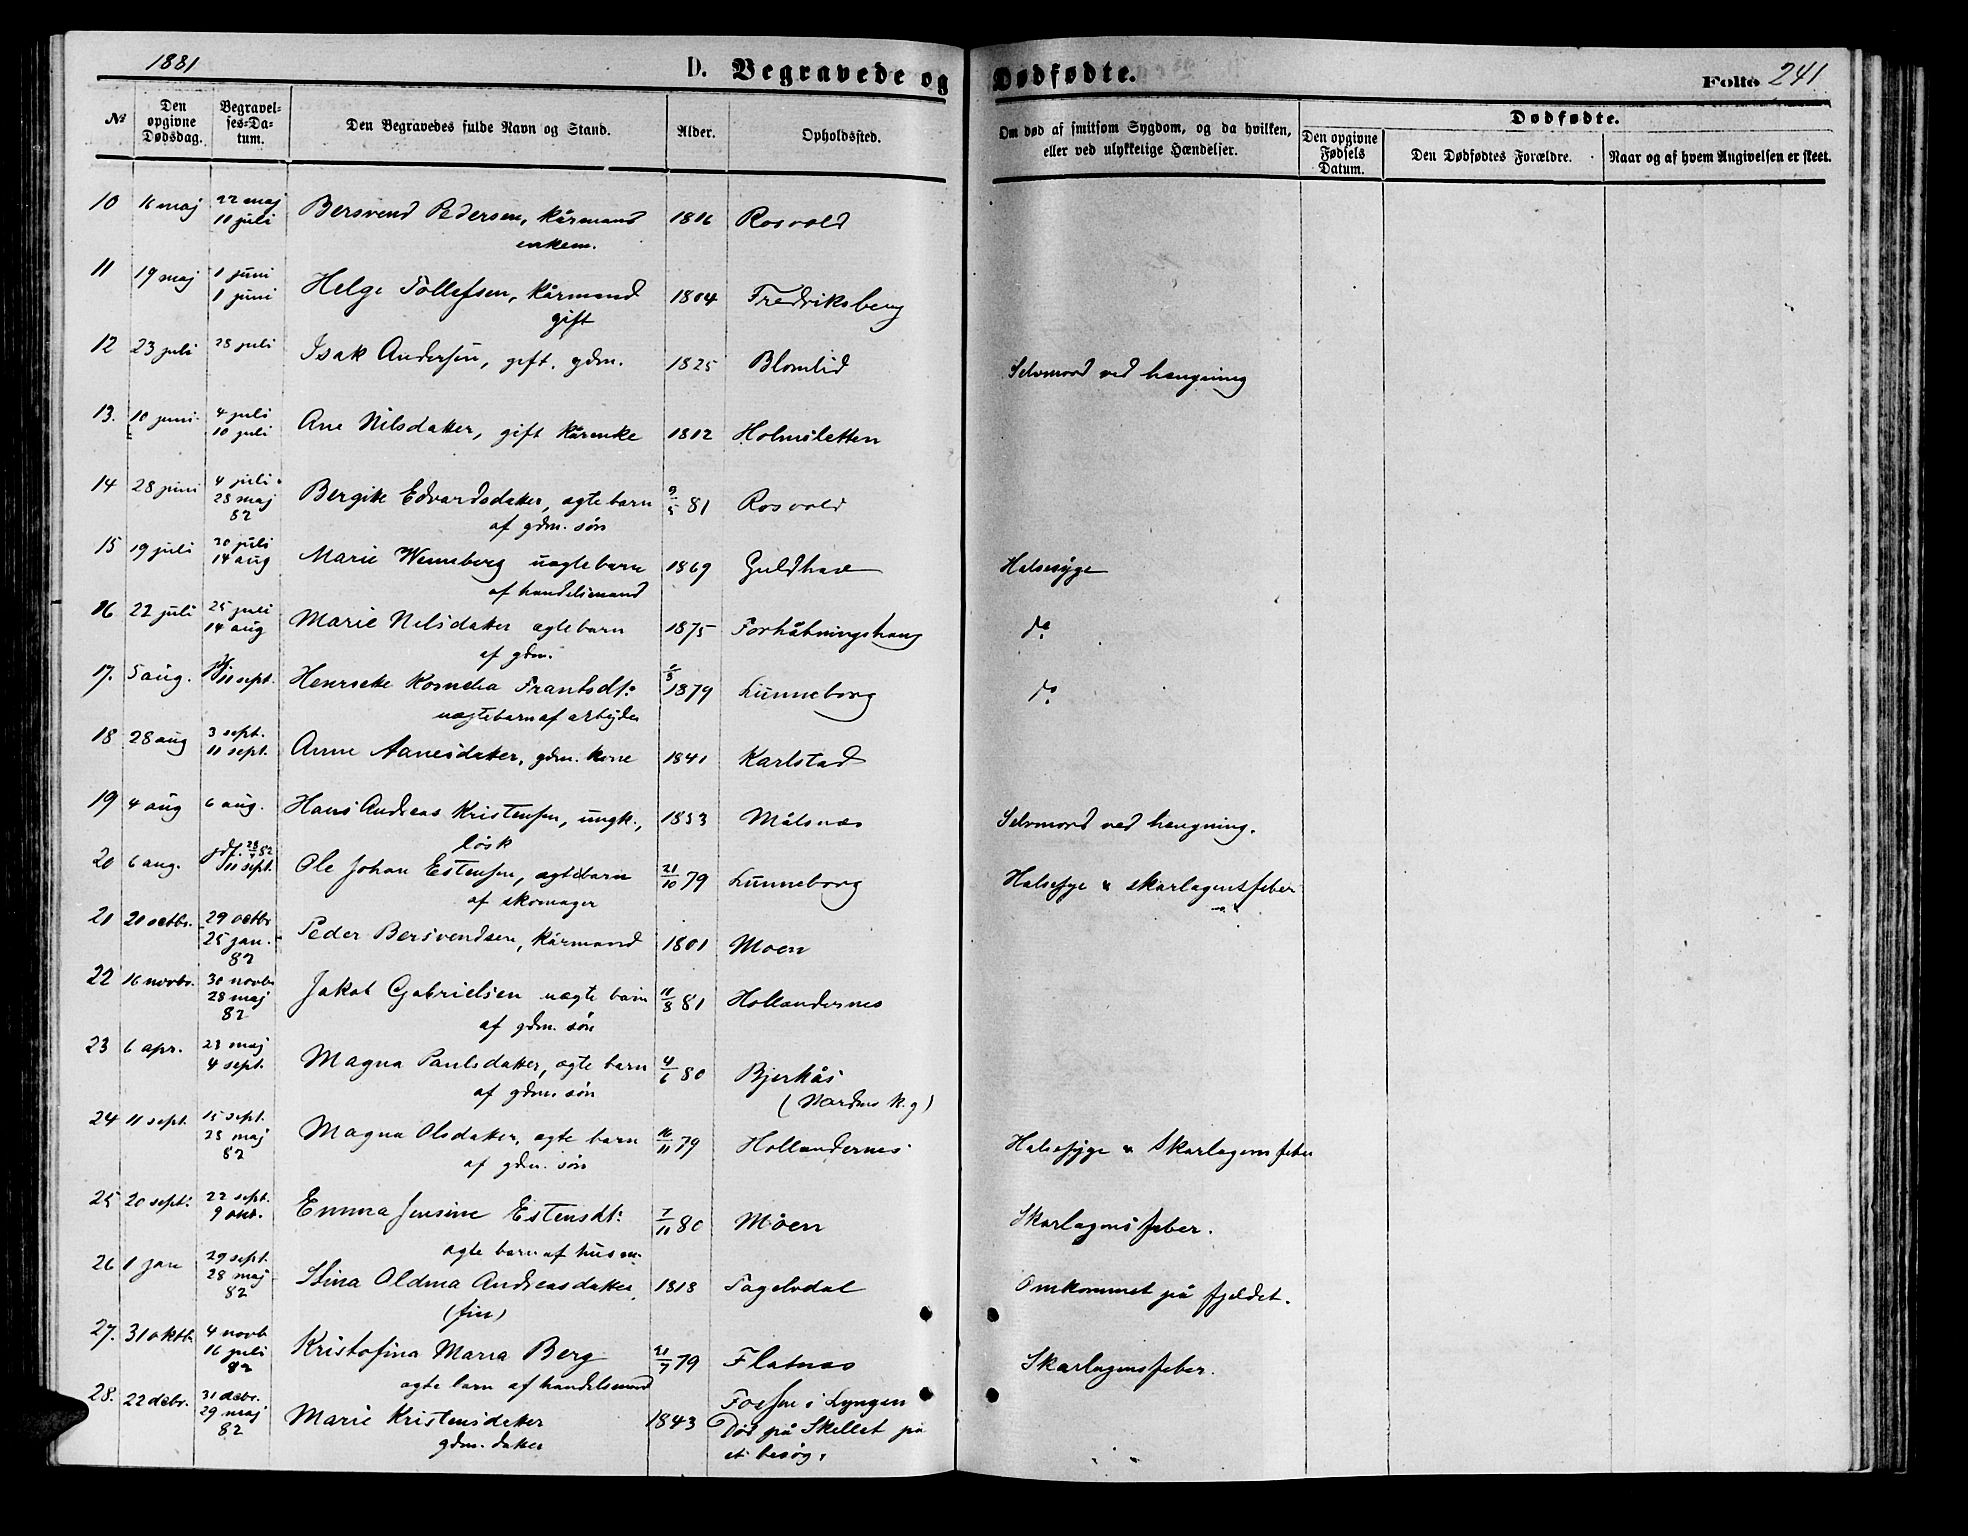 1881 D. Begravede og Dødfødte. Folio 241.
№ Den opgivne Dødsdag. Begravelses-Datum. Den Begravedes fulde Navn og Stand. Alder. Opholdssted. Om død af smitsom Sygdom, og da hvilken, eller ved ulykkelige Hændelser. Dødfødte. Den opgivne Fødsels Datum. Den Dødfødtes Forældre. Naar og af hvem Angivelsen er skeet.
10 16 maj 22 maj 11 juli Bersvend Pedersen, kårmand 1816 Rosvold
enkem.
11 19 maj 1 juni 1 juni Helge Tollefsen, kårmand 1804 Fredriksberg
gift
12 23 juli 28 juli Isak Andersen, gift. gdm. 1825 Blomlid Selvmord ved hængning
13. 10 juni 4 juli 10 juli Ane Nilsdatter, gift kårenke 1812 Holmsletten
14 28 juni 4 juli 28 maj 82 Bergitte Edvardsdatter, ægte barn 9/5 81 Rosvold
af gdm. søn
15 19 juli 20 juli 14 aug Marie Wenneberg uægte barn 1869 Guldhav Halsesyge
af handelsmand
16 22 juli 25 juli 14 aug Marie Nilsdatter ægte barn 1875 Forhåbningshaug do
af gdm.
17. 5 aug. 11 sept. Henrikke Kornelia Frantsdt: 1879 Lunneborg do
uægte barn af arbejder
18 28 aug 3 sept. 11 sept. Anne Aanesdatter, gdm. kone 1841 Karlstad
19 4 aug 6 aug. Hans Andreas Kristensen, ungk., 1853 Målsnes Selvmord ved hængning.
løsk
20 6 aug. 11 sept. Ole Johan Estensen, ægte barn 21/10 79 Lunneborg Halsesyge & skarlagensfeber
af skomager
21 20 octbr. 29 octbr 25 jan. 82 Peder Bersvendsen, kårmand 1801 Moen
22 16 novbr. 30 novbr 28 maj 82 Jakob Gabrielsen uægte barn 11/8 81 Hollendernes
af gdm. søn
23 6 apr. 23 maj 4 sept. Magna Paulsdatter, ægte barn 4/6 80 Bjerkås
af gdm. søn
24 11 sept. 15 sept. 28 maj 82 Magna Olsdatter, ægte barn 16/11 79 Hollendernes Halsesyge & Skarlagensfeber
af gdm. søn
25 20 sept. 22 sept. 9 okt. Emma Jensine Estensdt: 7/11 80 Moen Skarlagensfeber.
ægte barn af husm.
26 1 jan 29 sept. 28 maj 82 Stina Oldina Andreasdatter 1818 Fagelvdal Omkommet på fjeldet.
(fin)
27. 31 oktb. 4 novb 16 juli 82 Kristofina Maria Berg 21/7 79 Flatnes Skarlagensfeber.
ægte barn af handelsmand
28. 22 decbr. 31 decbr. 29 maj 82 Marie Kristensdatter 1843 Fossen i Lyngen
gdm. datter Død på Skellet på
et besøg.